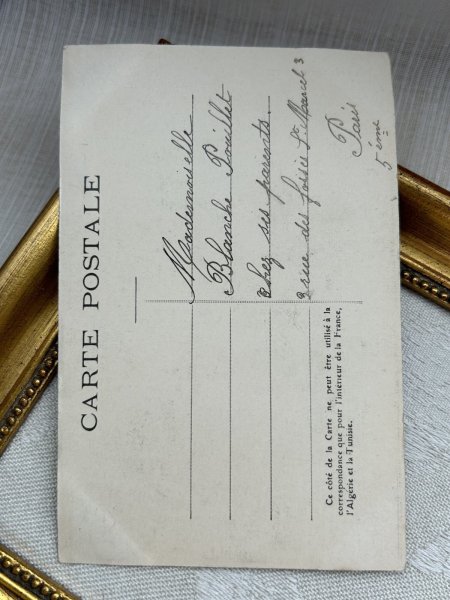 CARTE POSTALE
Mademoiselle
Blanche Pouillet
chez ses parents.
rue des fossés St Marcel 3
Paris
5ème
Ce côté de la Carte ne peut être utilisé à la
correspondance que pour l'intérieur de la France,
l'Algérie et la Tunisie.